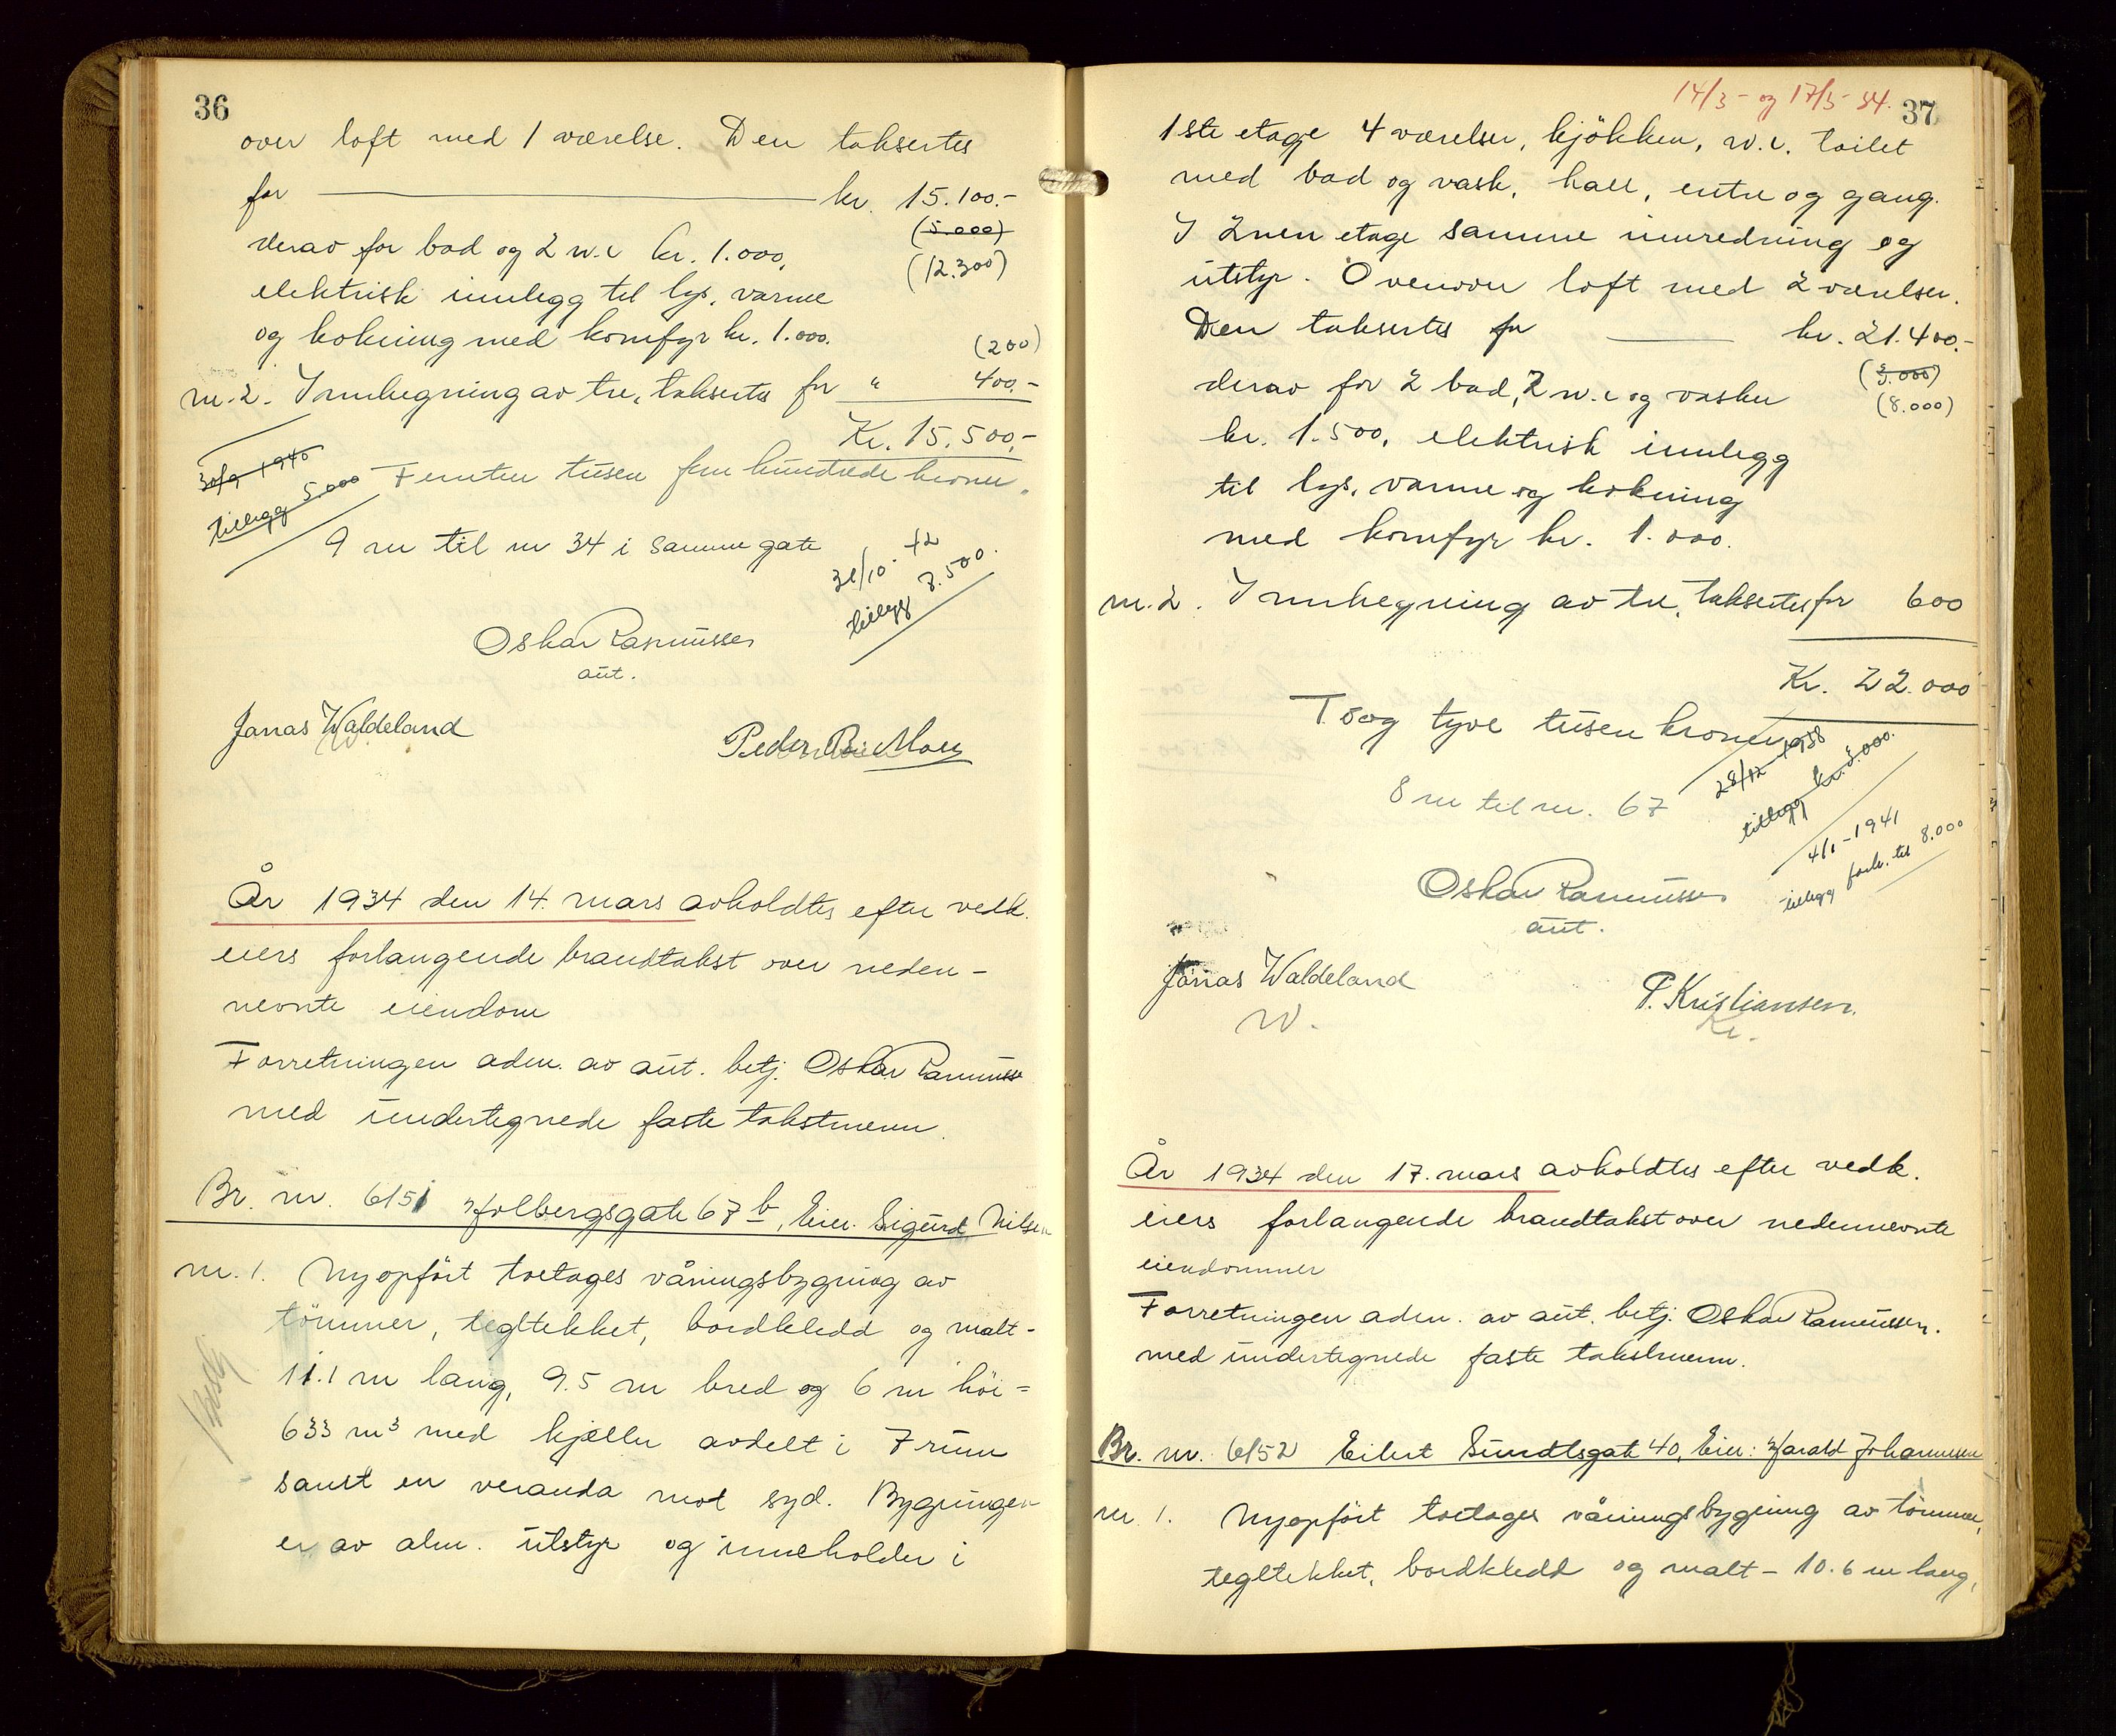 36
over loft med 1 værelse. Den taksertes
for kr. 15.100.-
(5.000)
derav for bad og 2 w.c kr. 1.000,
(12.300)
elektrisk innlegg til lys, varme
og kokning med komfyr kr. 1.000.
(200)
nr. 2. Innhegning av tre, taksertes for " 400.-
Kr. 15.500.-
30/9 1940
tillegg 5.000
Femten tusen fem hundrede kroner.
9 m til nr 34 i samme gate
31/10 - 42
tillegg 7.500.
Oskar Rasmussen
aut.
Jonas Waldeland
Peder
År 1934 den 14. mars avholdtes efter vedk.
eiers forlangende brandtakst over neden-
nevnte eiendom
Forretningen adm. av aut. betj. Oskar Rasmussen
med undertegnede faste takstmenn.
Br. nr. 6151 Holbergsgate 67 b, Eier. Sigurd Nilsen
nr. 1. Nyopført toetages våningsbygning av
tömmer, tegltekket, bordkledd og malt -
11.1 m lang, 9.5 m bred og 6 m höi =
633 m³ med kjeller avdelt i 7 rum
samt en veranda mot syd. Bygningen
er av alm. utstyr og inneholder i
14/3 - og 17/3 - 34.
37
1ste etage 4 værelser, kjökken, w.c. toilet
med bad og vask, hall, entre og gang.
I 2nen etage samme innredning og
utstyr. Ovenover loft med 2 værelser.
Den taksertes for kr. 21.400.-
(3.000)
derav for 2 bad, 2 w.c og vasker
(8.000)
kr. 1.500, elektrisk innlegg
til lys, varme og kokning
med komfyr kr. 1.000.
nr. 2. Innhegning av tre, taksertes for 600
Kr. 22.000
Toog tyve tusen kroner
28/12 1938
tillegg kr. 3.000.
8 m til nr. 67
4/1 - 1941
tillegg forh. til 8.000
Oskar Rasmussen
aut.
Jonas Waldeland
W.
P. Kristiansen.
Kr.
År 1934 den 17. mars avholdtes efter vedk.
eiers forlangende brandtakst over nedennevnte
eiendommer
Forretningen adm. av aut. betj. Oskar Rasmussen.
med undertegnede faste takstmenn.
Br. nr. 6152 Eilert Sundtsgate 40, Eier: Harald Johannesen
nr. 1. Nyopfört toetages våningsbygning av tömmer,
tegltekket, bordkledd og malt - 10.6 m lang,